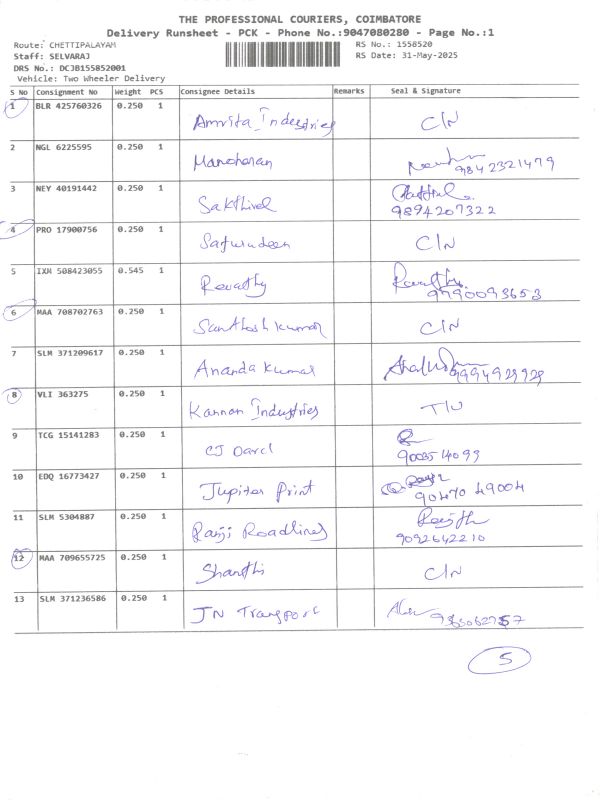 THE PROFESSIONAL COURIERS, COIMBATORE
Delivery Runsheet - PCK - Phone No.:9047080280 - Page No.:1
Route: CHETTIPALAYAM RS No.: 1558520
Staff: SELVARAJ RS Date: 31-May-2025
DRS No.: DCJB155852001
Vehicle: Two Wheeler Delivery
S No Consignment No Weight PCS Consignee Details Remarks Seal & Signature
1 BLR 425760326 0.250 1 Amrita Industries C/N
2 NGL 6225595 0.250 1 Manoharan 9842321479
3 NEY 40191442 0.250 1 Sakthivel 9894207322
4 PRO 17900756 0.250 1 C/N
5 IXM 508423055 0.545 1 Revathy Revathy 9790093653
6 MAA 708702763 0.250 1 Santhosh kumar C/N
7 SLM 371209617 0.250 1 Ananda kumar 9994929929
8 VLI 363275 0.250 1 Kannan Industries
9 TCG 15141283 0.250 1 CJ Darcl 9003514099
10 EDQ 16773427 0.250 1 Jupiter Print 90470 49004
11 SLM 5304887 0.250 1 Ranji Roadlines 9092642210
12 MAA 709655725 0.250 1 Shanthi C/N
13 SLM 371236586 0.250 1 JN Transport
5